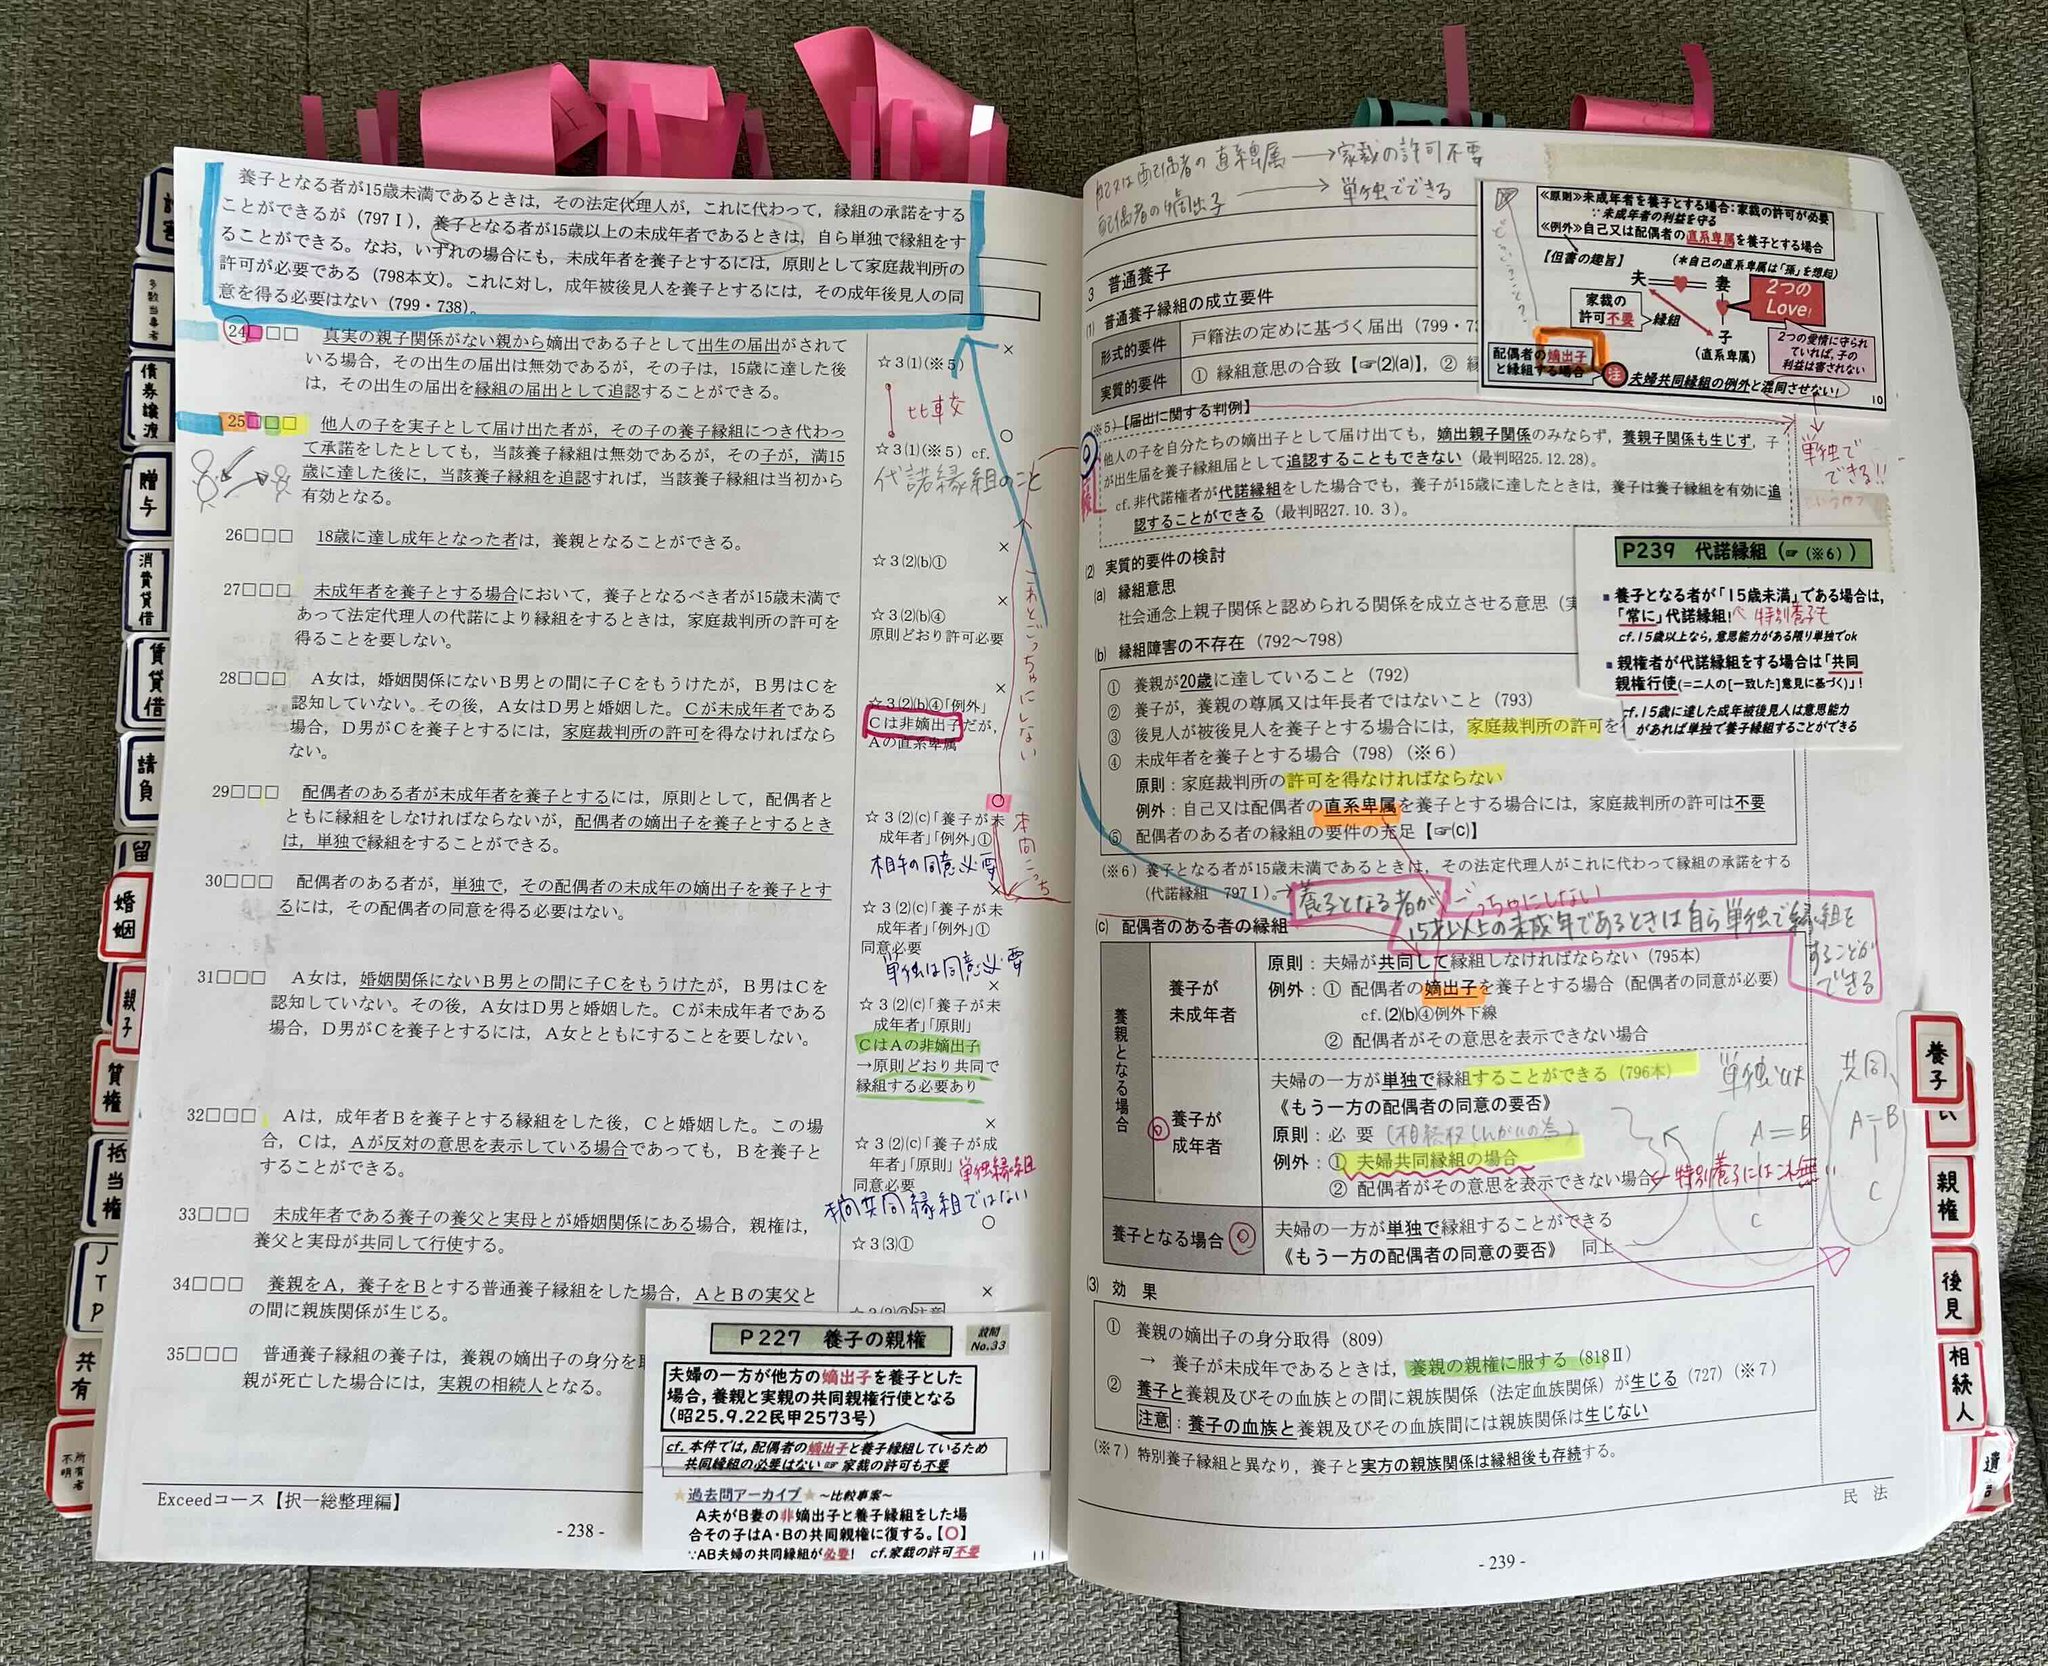 養子となる者が15歳未満であるときは，その法定代理人が，これに代わって，縁組の承諾をする
ことができるが（797Ⅰ），養子となる者が15歳以上の未成年者であるときは，自ら単独で縁組をす
ることができる。なお，いずれの場合にも，未成年者を養子とするには，原則として家庭裁判所の
許可が必要である（798本文）。これに対し，成年被後見人を養子とするには，その成年後見人の同
意を得る必要はない（799・738）。
24□□□ 真実の親子関係がない親から嫡出である子として出生の届出がされて
いる場合，その出生の届出は無効であるが，その子は，15歳に達した後
は，その出生の届出を縁組の届出として追認することができる。
×
☆3⑴(※5)
比較
25□□□ 他人の子を実子として届け出た者が，その子の養子縁組につき代わっ
て承諾をしたとしても，当該養子縁組は無効であるが，その子が，満15
歳に達した後に，当該養子縁組を追認すれば，当該養子縁組は当初から
有効となる。
○
☆3⑴(※5) cf.
代諾縁組のこと
26□□□ 18歳に達し成年となった者は，養親となることができる。
×
☆3⑵(b)①
27□□□ 未成年者を養子とする場合において，養子となるべき者が15歳未満で
あって法定代理人の代諾により縁組をするときは，家庭裁判所の許可を
得ることを要しない。
×
☆3⑵(b)④
原則どおり許可必要
28□□□ A女は，婚姻関係にないB男との間に子Cをもうけたが，B男はCを
認知していない。その後，A女はD男と婚姻した。Cが未成年者である
場合，D男がCを養子とするには，家庭裁判所の許可を得なければなら
ない。
×
☆3⑵(b)④「例外」
Cは非嫡出子だが，
Aの直系卑属
これとごっちゃにしない
29□□□ 配偶者のある者が未成年者を養子とするには，原則として，配偶者と
ともに縁組をしなければならないが，配偶者の嫡出子を養子とするとき
は，単独で縁組をすることができる。
○
☆3⑵(c)「養子が未
成年者」「例外」①
相手の同意必要
30□□□ 配偶者のある者が，単独で，その配偶者の未成年の嫡出子を養子とす
るには，その配偶者の同意を得る必要はない。
×
☆3⑵(c)「養子が未
成年者」「例外」①
同意必要
単独は同意必要
31□□□ A女は，婚姻関係にないB男との間に子Cをもうけたが，B男はCを
認知していない。その後，A女はD男と婚姻した。Cが未成年者である
場合，D男がCを養子とするには，A女とともにすることを要しない。
×
☆3⑵(c)「養子が未
成年者」「原則」
CはAの非嫡出子
→原則どおり共同で
縁組する必要あり
32□□□ Aは，成年者Bを養子とする縁組をした後，Cと婚姻した。この場
合，Cは，Aが反対の意思を表示している場合であっても，Bを養子と
することができる。
×
☆3⑵(c)「養子が成
年者」「原則」
同意必要
単独縁組
共同縁組ではない
33□□□ 未成年者である養子の養父と実母とが婚姻関係にある場合，親権は，
養父と実母が共同して行使する。
○
☆3⑶①
34□□□ 養親をA，養子をBとする普通養子縁組をした場合，AとBの実父と
の間に親族関係が生じる。
×
35□□□ 普通養子縁組の養子は，養親の嫡出子の身分を
親が死亡した場合には，実親の相続人となる。
P227 養子の親権
設問
No.33
夫婦の一方が他方の嫡出子を養子とした
場合，養親と実親の共同親権行使となる
（昭25.9.22民甲2573号）
cf.本件では，配偶者の嫡出子と養子縁組しているため
共同縁組の必要はない☞家裁の許可も不要
★過去問アーカイブ★ ～比較事案～
A夫がB妻の非嫡出子と養子縁組をした場
合その子はA・Bの共同親権に復する。【○】
∵AB夫婦の共同縁組が必要！ cf.家裁の許可不要
11
Exceedコース【択一総整理編】
- 238 -
多数当事者
債券譲渡
贈与
消費貸借
賃貸借
請負
留
婚姻
親子
質権
抵当権
共有
所有者不明
自己又は配偶者の直系卑属→家裁の許可不要
配偶者の嫡出子→単独でできる
≪原則≫未成年者を養子とする場合：家裁の許可が必要
∵未成年者の利益を守る
≪例外≫自己又は配偶者の直系卑属を養子とする場合
【但書の趣旨】
（＊自己の直系卑属は「孫」を想起）
夫
妻
2つの
Love!
家裁の
許可不要
縁組
子
（直系卑属）
2つの愛情に守られ
ていれば，子の
利益は害されない
配偶者の嫡出子
と縁組する場合
注
夫婦共同縁組の例外と混同させない！
10
単独で
できる!!
3 普通養子
⑴ 普通養子縁組の成立要件
形式的要件 戸籍法の定めに基づく届出（799・73
実質的要件 ① 縁組意思の合致【☞⑵(a)】，②
(※5)【届出に関する判例】
他人の子を自分たちの嫡出子として届け出ても，嫡出親子関係のみならず，養親子関係も生じず，子
が出生届を養子縁組届として追認することもできない（最判昭25.12.28）。
cf.非代諾権者が代諾縁組をした場合でも，養子が15歳に達したときは，養子は養子縁組を有効に追
認することができる（最判昭27.10.3）。
P239 代諾縁組（☞（※6））
▪養子となる者が「15歳未満」である場合は，
「常に」代諾縁組！
特別養子も
cf.15歳以上なら，意思能力がある限り単独でok
▪親権者が代諾縁組をする場合は「共同
親権行使(=二人の[一致した]意見に基づく)」！
cf.15歳に達した成年被後見人は意思能力
があれば単独で養子縁組することができる
⑵ 実質的要件の検討
(a) 縁組意思
社会通念上親子関係と認められる関係を成立させる意思
(b) 縁組障害の不存在（792～798）
① 養親が20歳に達していること（792）
② 養子が，養親の尊属又は年長者ではないこと（793）
③ 後見人が被後見人を養子とする場合には，家庭裁判所の許可を
④ 未成年者を養子とする場合（798）（※6）
原則：家庭裁判所の許可を得なければならない
例外：自己又は配偶者の直系卑属を養子とする場合には，家庭裁判所の許可は不要
⑤ 配偶者のある者の縁組の要件の充足【☞(c)】
(※6) 養子となる者が15歳未満であるときは，その法定代理人がこれに代わって縁組の承諾をする
（代諾縁組 797Ⅰ）。
養子となる者が
ごっちゃにしない
15才以上の未成年であるときは自ら単独で縁組を
することが
できる
(c) 配偶者のある者の縁組
養親となる場合
養子が
未成年者
原則：夫婦が共同して縁組しなければならない（795本）
例外：① 配偶者の嫡出子を養子とする場合（配偶者の同意が必要）
cf.⑵(b)④例外下線
② 配偶者がその意思を表示できない場合
養子が
成年者
夫婦の一方が単独で縁組することができる（796本）
《もう一方の配偶者の同意の要否》
原則：必 要
例外：① 夫婦共同縁組の場合
② 配偶者がその意思を表示できない場合
特別養子にはこれ無
共同
A＝B
C
A＝B
C
養子となる場合
夫婦の一方が単独で縁組することができる
《もう一方の配偶者の同意の要否》 同上
⑶ 効 果
① 養親の嫡出子の身分取得（809）
→ 養子が未成年であるときは，養親の親権に服する（818Ⅱ）
② 養子と養親及びその血族との間に親族関係（法定血族関係）が生じる（727）（※7）
注意：養子の血族と養親及びその血族間には親族関係は生じない
(※7) 特別養子縁組と異なり，養子と実方の親族関係は縁組後も存続する。
民 法
- 239 -
養子
親権
後見
相続人